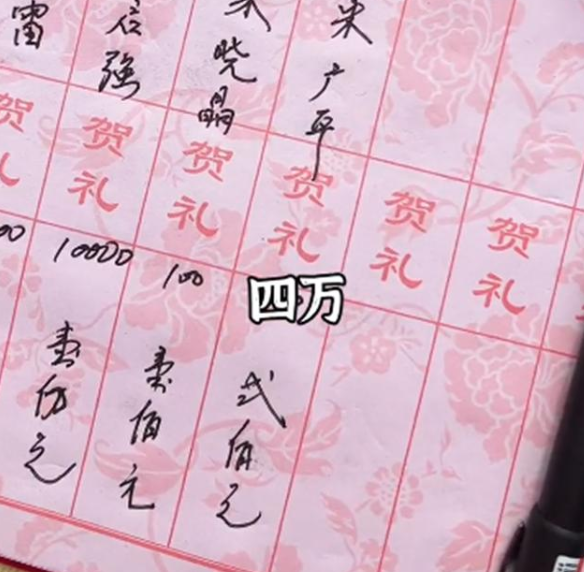 雷
强
晓晶
广平
贺礼
贺礼
贺礼
贺礼
贺礼
贺礼
00
10000
100
四万
壹佰元
弍佰元